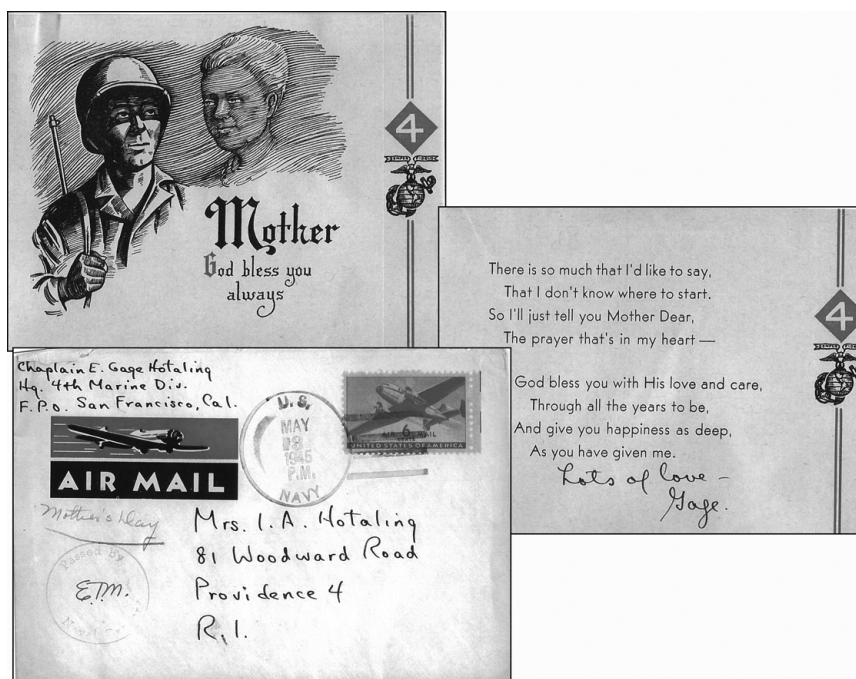 Mother
God bless you
always
4
SEMPER FIDELIS
There is so much that I'd like to say,
That I don't know where to start.
So I'll just tell you Mother Dear,
The prayer that's in my heart —
God bless you with His love and care,
Through all the years to be,
And give you happiness as deep,
As you have given me.
Lots of love –
Gage.
4
Chaplain E. Gage Hotaling
Hq. 4th Marine Div.
F.P.O. San Francisco, Cal.
AIR MAIL
U.S.
MAY
1945
P.M.
NAVY
AIR 6 MAIL
UNITED STATES OF AMERICA
Mother's Day
Passed By
E.T.M.
Naval
Mrs. I. A. Hotaling
81 Woodward Road
Providence 4
R.I.